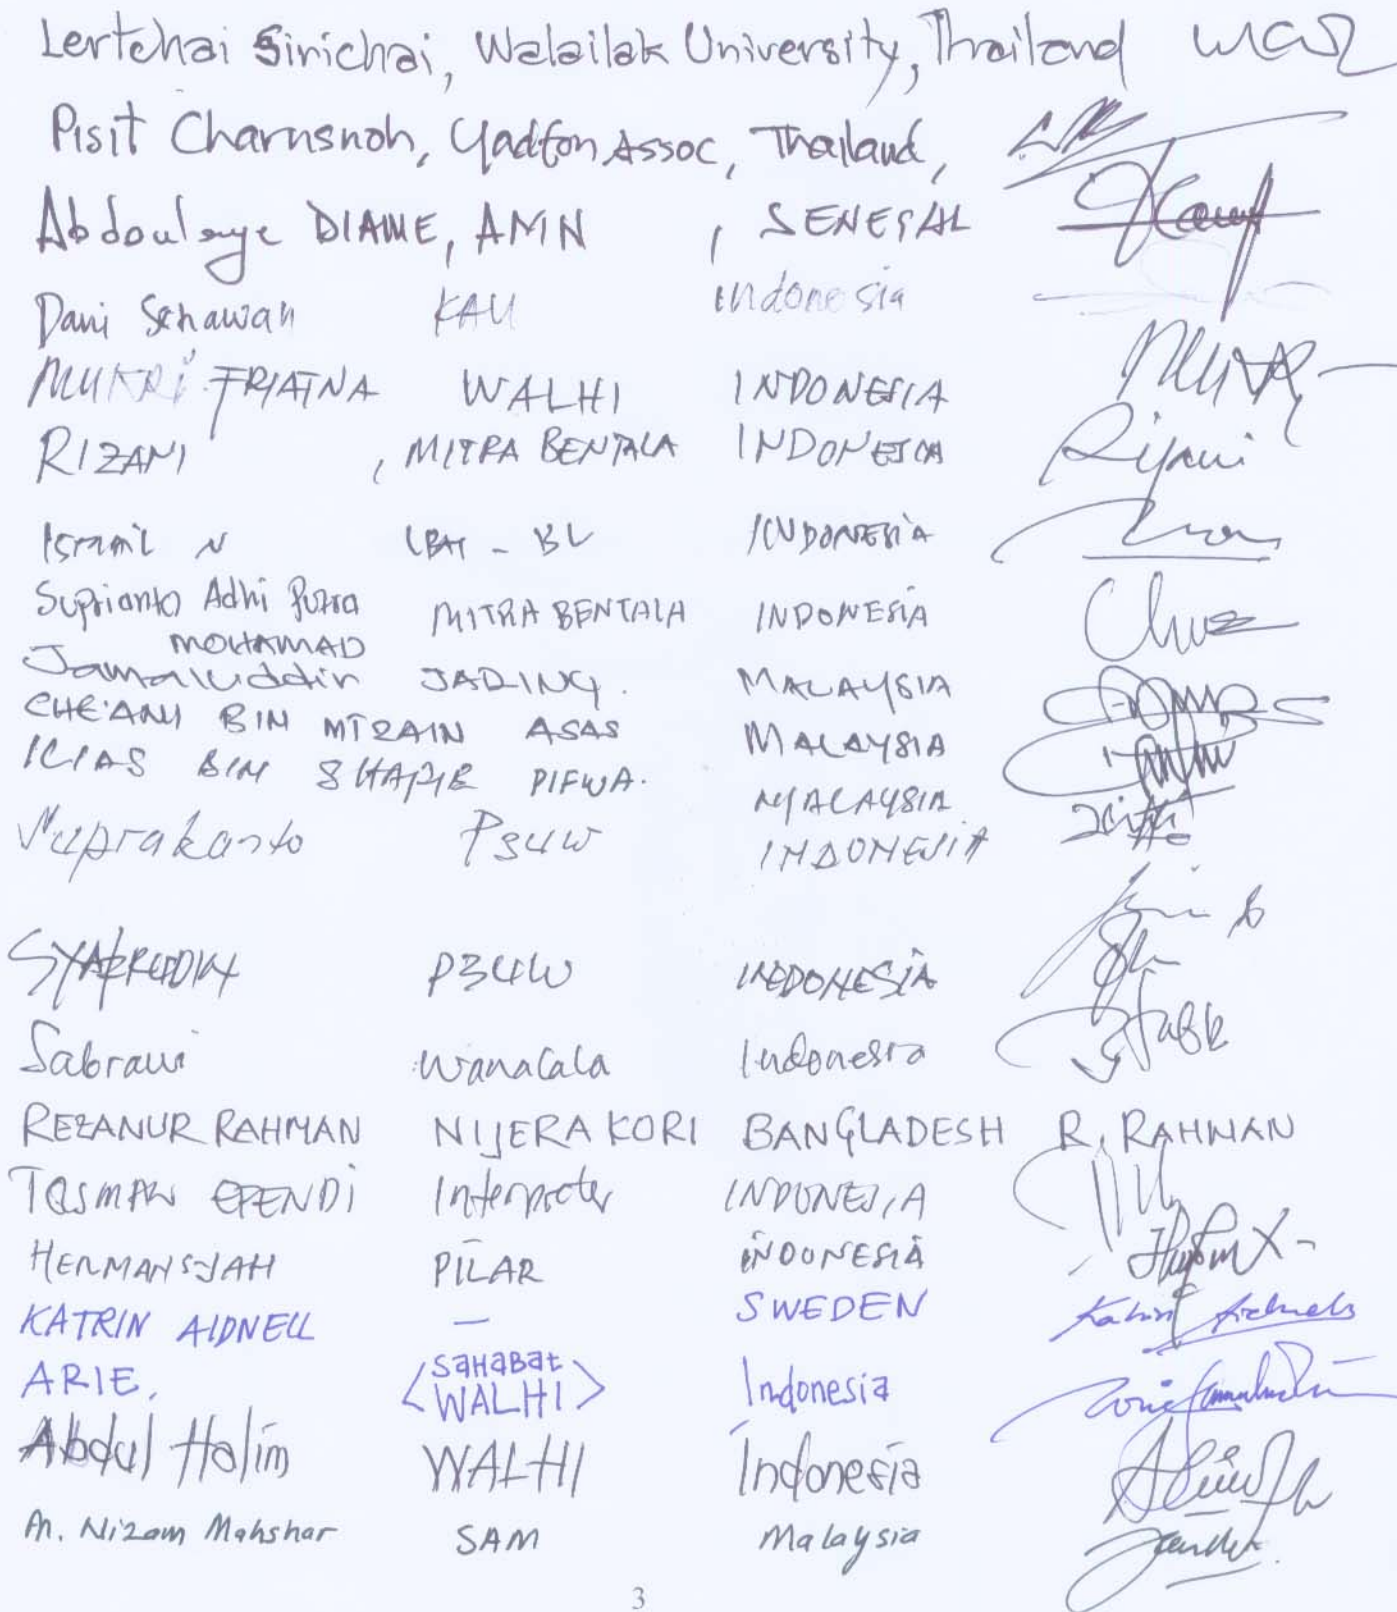 Lertchai Sirichai, Walailak University, Thailand
Pisit Charnsnoh, Yadfon Assoc, Thailand,
Abdoulaye DIAME, AMN , SENEGAL
Dani Setiawan KAU indonesia
MUKRI FRIATNA WALHI INDONESIA
RIZANI , MITRA BENTALA INDONESIA
Ismail N - BL INDONESIA
Suprianto Adhi Putra MITRA BENTALA INDONESIA
MOHAMAD
Jamaluddin JARING. MALAYSIA
CHE'ANI BIN MT ZAIN ASAS MALAYSIA
ILIAS BIN SHAFIE PIFWA. MALAYSIA
Suprakanto P3UW INDONESIA
SYAFRUDDIN P3UW INDONESIA
Sabrawi Wanacala Indonesia
REZANUR RAHMAN NIJERA KORI BANGLADESH R. RAHMAN
TASMAN EFENDI Interpreter INDONESIA
HERMANSJAH PILAR INDONESIA
KATRIN AIDNELL — SWEDEN Katrin Aidnell
ARIE. <SAHABAT WALHI> Indonesia
Abdul Halim WALHI Indonesia
M. Nizam Mahshar SAM Malaysia
3